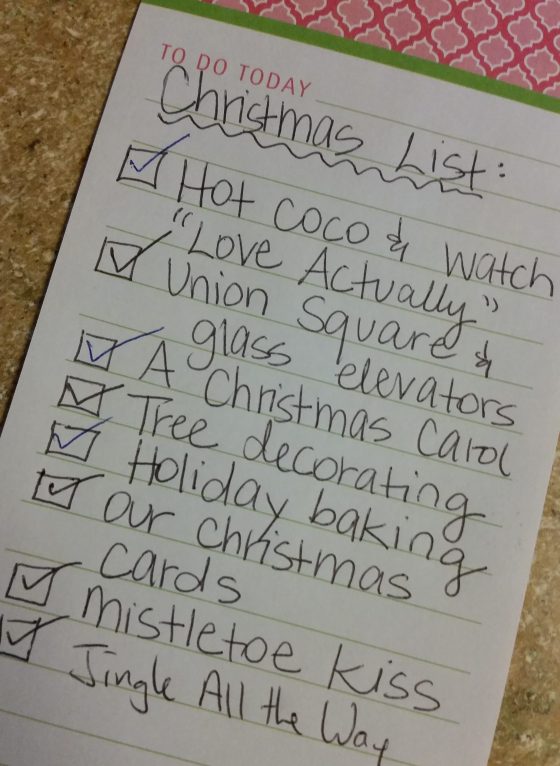 TO DO TODAY
Christmas List:
Hot coco & watch
"Love Actually"
Union Square &
glass elevators
A Christmas Carol
Tree decorating
Holiday baking
our christmas
cards
mistletoe kiss
Jingle All the Way